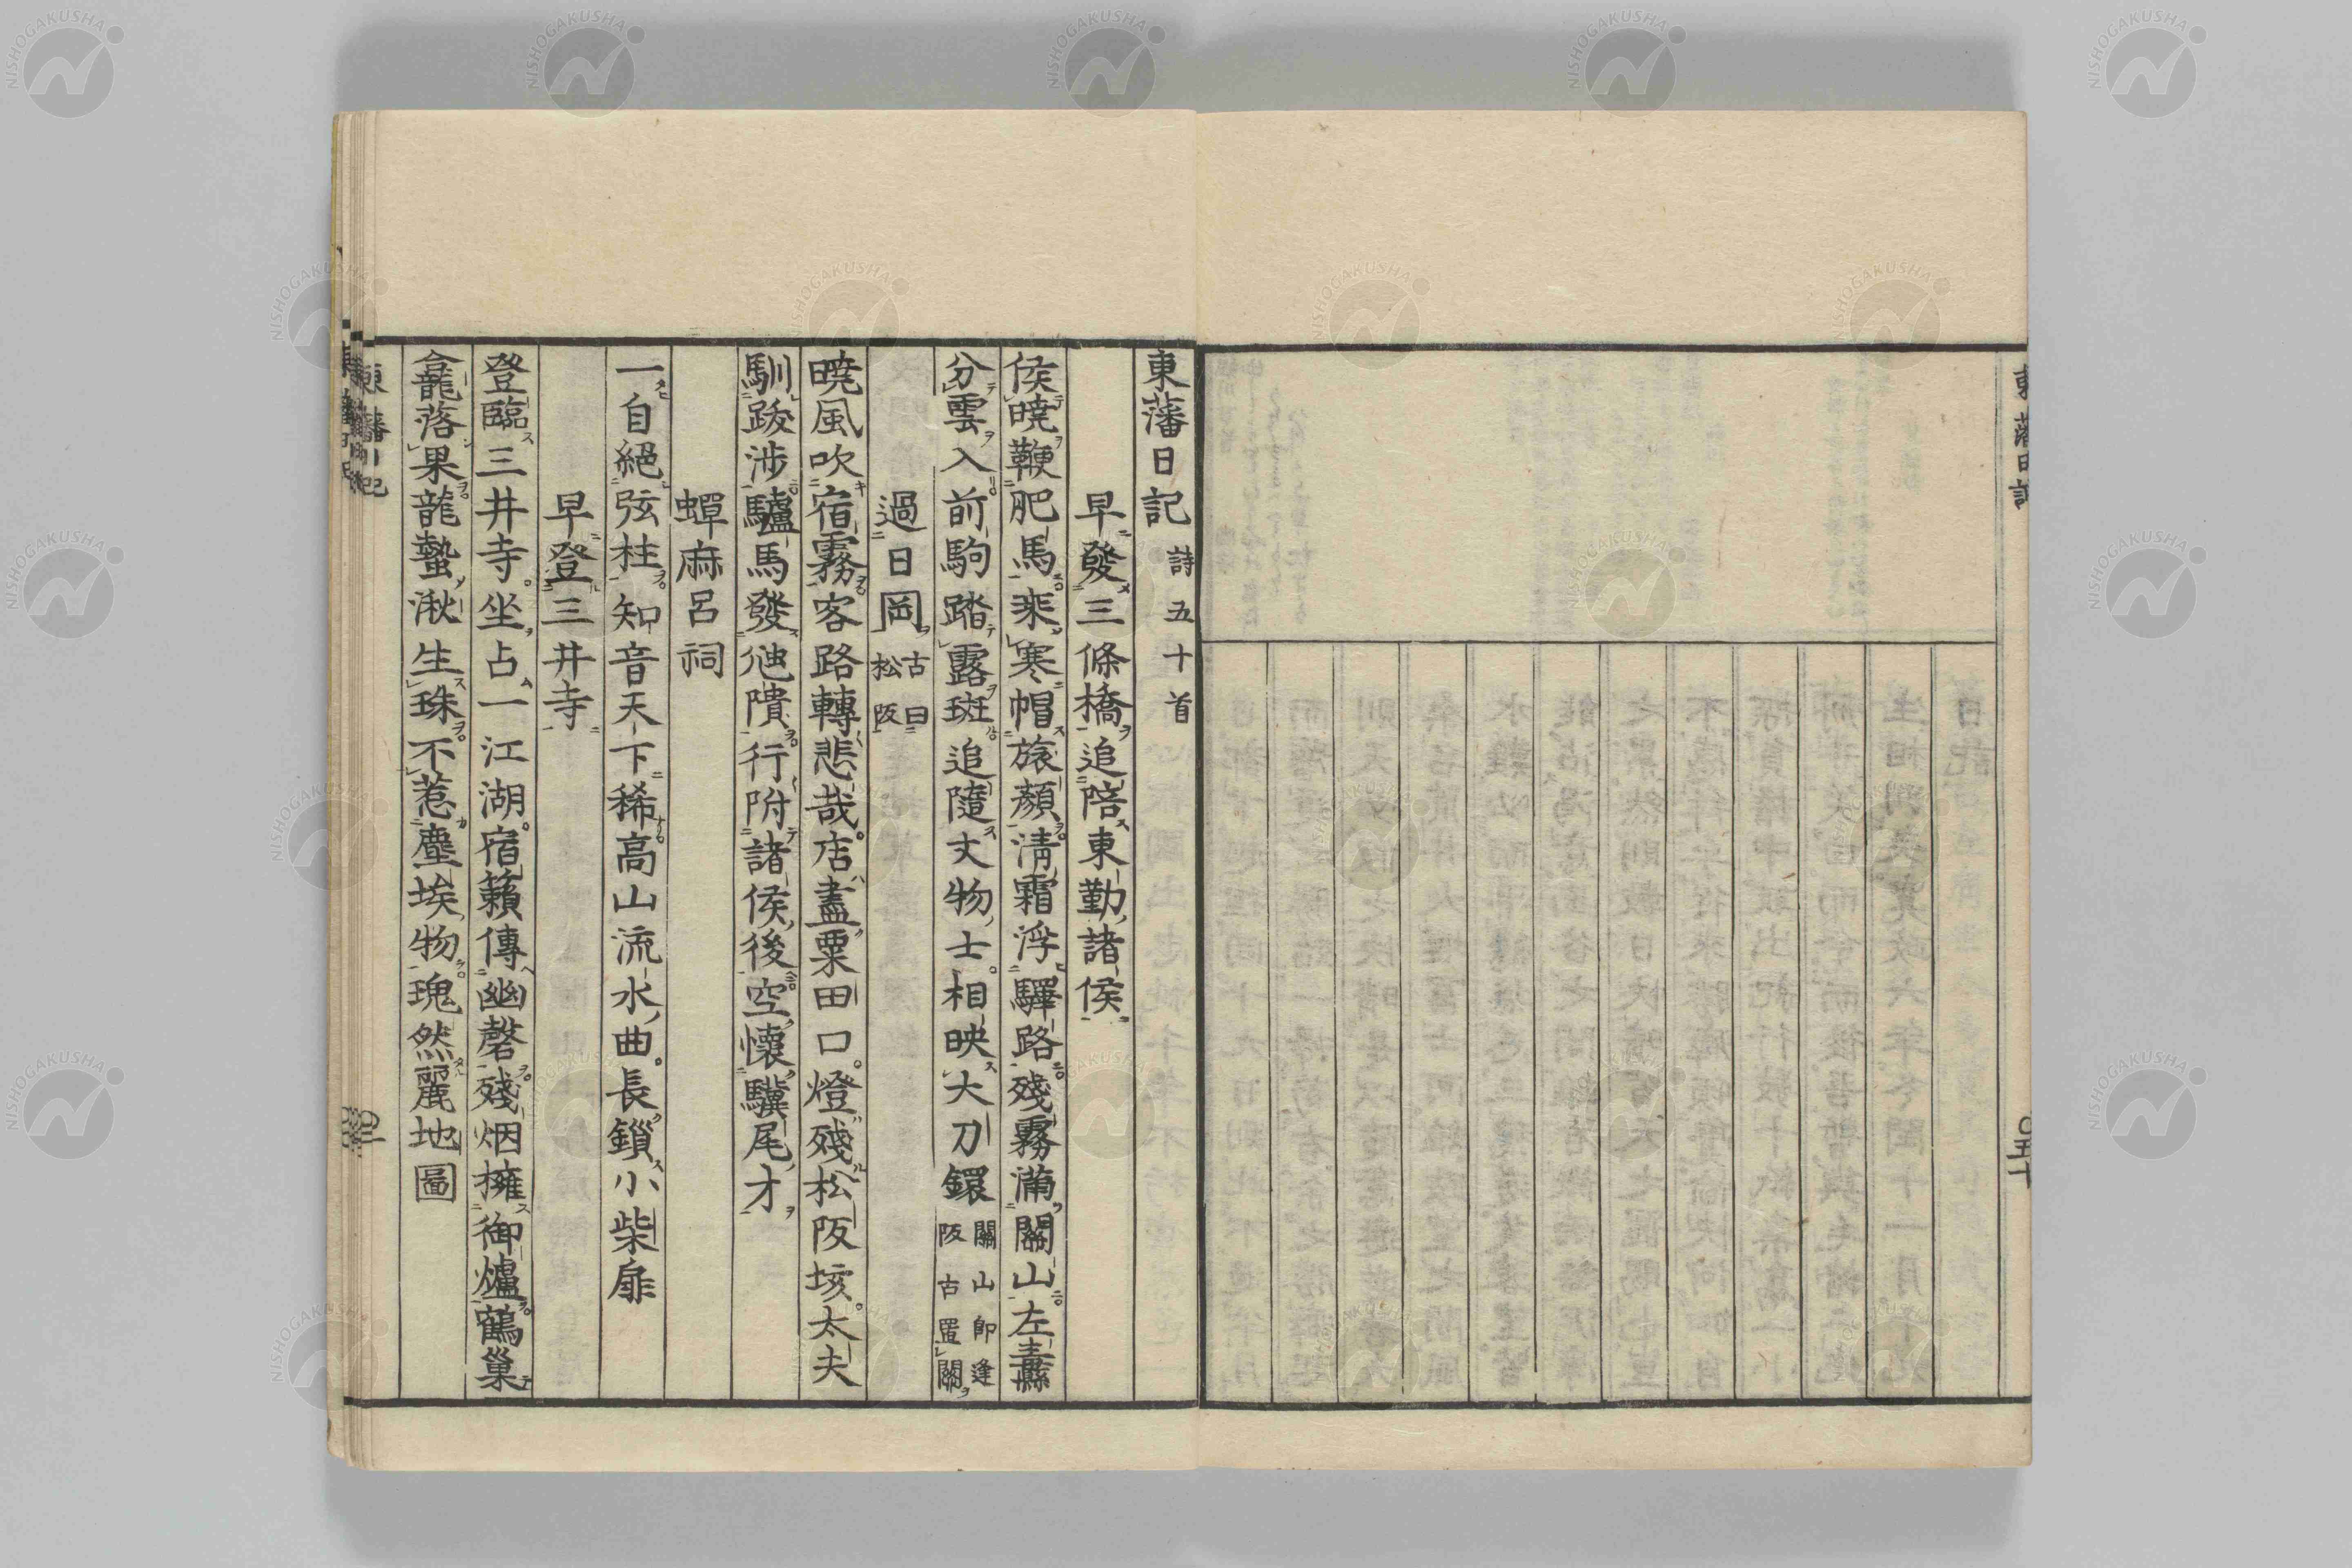 東藩日記 詩五十首
早發三條橋追陪東勤諸侯
侯曉鞭肥馬乘寒帽旅顏淸霜浮驛路殘霧滿關山左纛
分雲入前駒踏露斑追隨文物士相映大刀鐶 關山即逢阪古置關
過日岡 古曰松阪
曉風吹宿霧客路轉悲哉店盡粟田口燈殘松阪垓太夫
馴跋涉驢馬發虺隤行附諸侯後空懷驥尾才
蟬麻呂祠
一自絕弦柱知音天下稀高山流水曲長鎖小柴扉
早登三井寺
登臨三井寺坐占一江湖宿籟傳幽磬殘烟擁御爐鶴巢
龕落果龍蟄湫生珠不惹塵埃物瑰然麗地圖
東藩日記
NISHOGAKUSHA